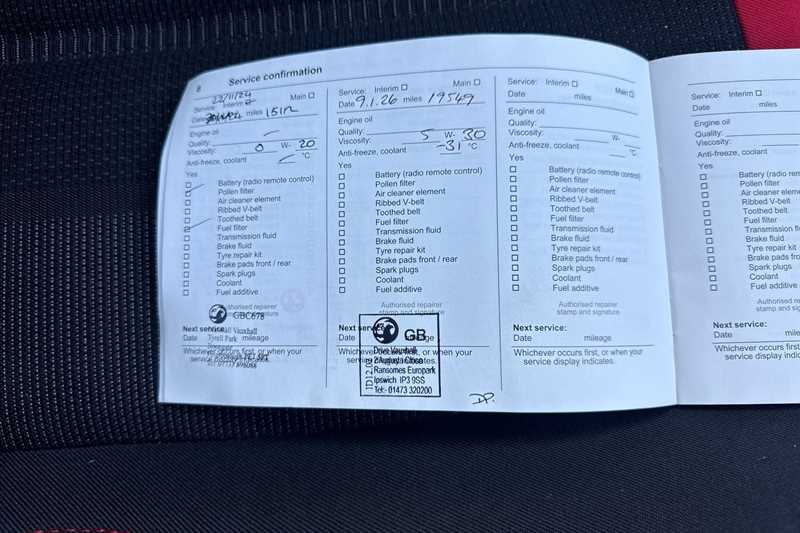 8 Service confirmation
22/11/24
Service: Interim Main
Date miles
Engine oil
Quality:
Viscosity: 0 W- 20
Anti-freeze, coolant °C
Yes
Battery (radio remote control)
Pollen filter
Air cleaner element
Ribbed V-belt
Toothed belt
Fuel filter
Transmission fluid
Brake fluid
Tyre repair kit
Brake pads front / rear
Spark plugs
Coolant
Fuel additive
GBC678
Next service:
Date mileage
Tyrell Park
Whichever occurs first, or when your
service
Service: Interim Main
Date 9.1.26 miles 19549
Engine oil
Quality:
Viscosity: 5 W- 30
Anti-freeze, coolant -31 °C
Yes
Battery (radio remote control)
Pollen filter
Air cleaner element
Ribbed V-belt
Toothed belt
Fuel filter
Transmission fluid
Brake fluid
Tyre repair kit
Brake pads front / rear
Spark plugs
Coolant
Fuel additive
Authorised repairer
stamp and signature
GB
Next service:
Date mileage
Drive Vauxhall
Whichever occurs first, or when your
2 Augusta Close
service display indicates.
Ransomes Europark
Ipswich IP3 9SS
Tel:- 01473 320200
DP.
Service: Interim Main
Date miles
Engine oil
Quality:
Viscosity: W-
Anti-freeze, coolant °C
Yes
Battery (radio remote control)
Pollen filter
Air cleaner element
Ribbed V-belt
Toothed belt
Fuel filter
Transmission fluid
Brake fluid
Tyre repair kit
Brake pads front / rear
Spark plugs
Coolant
Fuel additive
Authorised repairer
stamp and signature
Next service:
Date mileage
Whichever occurs first, or when your
service display indicates.
Service: Interim
Date miles
Engine oil
Quality:
Viscosity:
Anti-freeze, coolant
Yes
Battery (radio rem
Pollen filter
Air cleaner element
Ribbed V-belt
Toothed belt
Fuel filter
Transmission fluid
Brake fluid
Tyre repair kit
Brake pads front / r
Spark plugs
Coolant
Fuel additive
Authorised r
stamp and si
Next service:
Date mileage
Whichever occurs first, o
service display indi